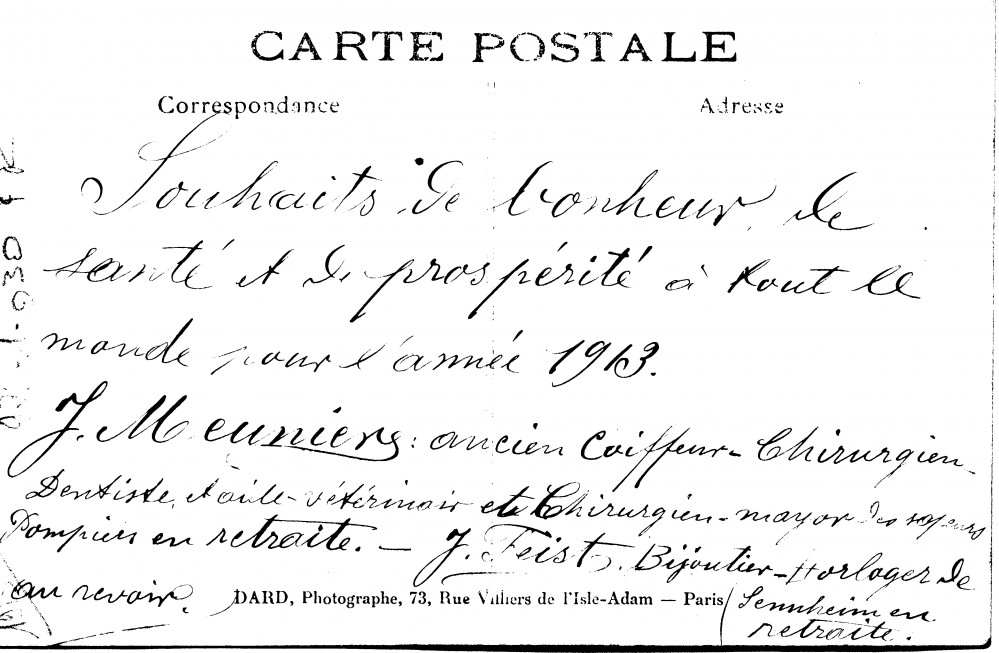 CARTE POSTALE
Correspondance
Adresse
Souhaits de bonheur, de
santé et de prospérité à tout le
monde pour l'année 1913.
J. Meuniers: ancien Coiffeur-Chirurgien-
Dentiste, vétérinair et Chirurgien-mayor des sapeurs
Pompiers en retraite. — J. Feist, Bijoutier-Horloger de
Sennheim en
retraite.
au revoir.
DARD, Photographe, 73, Rue Villiers de l'Isle-Adam — Paris